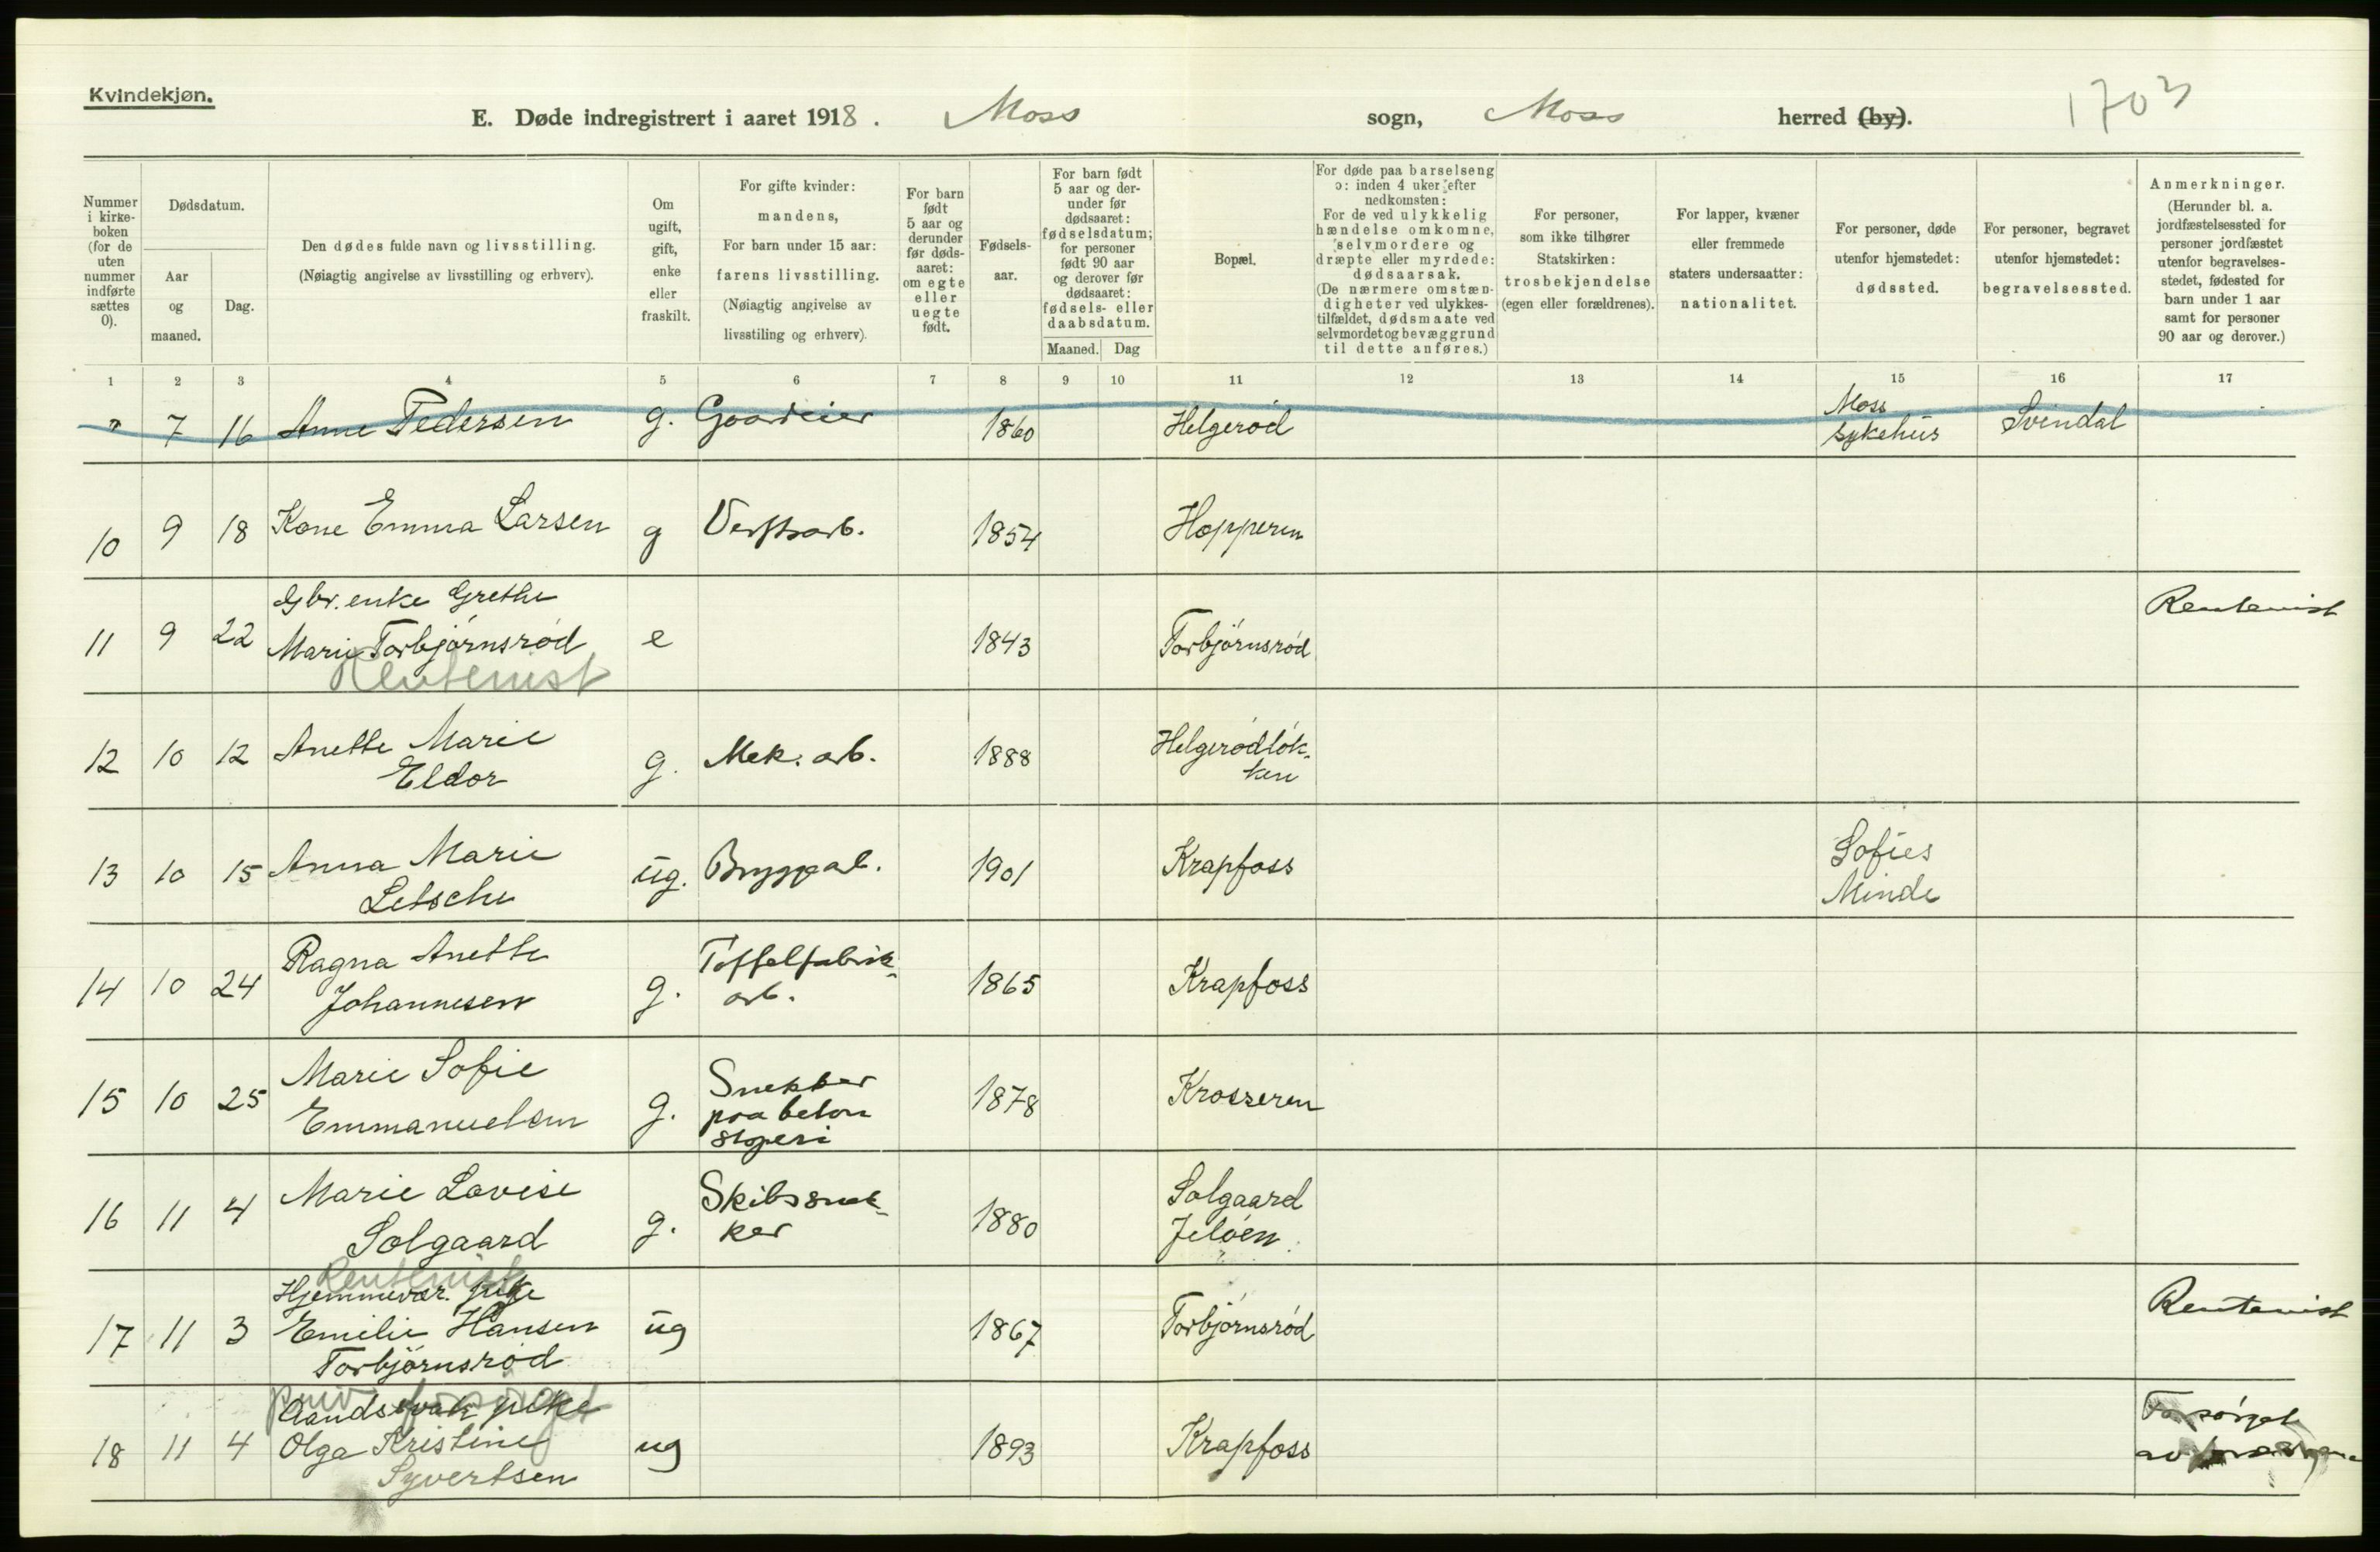 Kvindekjøn.
E. Døde indregistrert i aaret 1918. Moss sogn, Moss herred (by). 1703
Nummer i kirke-boken (for de uten nummer indførte sættes 0).
Dødsdatum.
Aar og maaned.
Dag.
Den dødes fulde navn og livsstilling.
(Nøiagtig angivelse av livsstilling og erhverv).
Om ugift, gift, enke eller fraskilt.
For gifte kvinder: mandens,
For barn under 15 aar: farens livsstilling.
(Nøiagtig angivelse av livsstiling og erhverv).
For barn født 5 aar og derunder før døds-aaret: om egte eller uegte født.
Fødsels-aar.
For barn født 5 aar og der-under før dødsaaret: fødselsdatum; for personer født 90 aar og derover før dødsaaret: fødsels- eller daabsdatum.
Maaned. Dag
Bopæl.
For døde paa barselseng ɔ: inden 4 uker efter nedkomsten:
For de ved ulykkelig hændelse omkomne, selvmordere og dræpte eller myrdede: dødsaarsak.
(De nærmere omstæn-digheter ved ulykkes-tilfældet, dødsmaate ved selvmordet og bevæggrund til dette anføres.)
For personer, som ikke tilhører Statskirken: trosbekjendelse (egen eller forældrenes).
For lapper, kvæner eller fremmede staters undersaatter: nationalitet.
For personer, døde utenfor hjemstedet: dødssted.
For personer, begravet utenfor hjemstedet: begravelsessted.
Anmerkninger.
(Herunder bl. a. jordfæstelsessted for personer jordfæstet utenfor begravelses-stedet, fødested for barn under 1 aar samt for personer 90 aar og derover.)
1 2 3 4 5 6 7 8 9 10 11 12 13 14 15 16 17
7 16 Anne Pedersen g. Gaardeier 1860 Helgerød Moss sykehus Svindal
10 9 18 Kone Emma Larsen g Verftsarb. 1854 Hoppern
11 9 22 Gbr. enke Grethe
Marie Torbjørnsrød e 1843 Torbjørnsrød Rentenist
Rentenist
12 10 12 Anette Marie
Eldor g. Mek. arb. 1888 Helgerødløk-
ken
13 10 15 Anna Marie
Letsche ug. Bryggearb. 1901 Krapfoss Sofies
Minde
14 10 24 Ragna Anette
Johannesen g. Tøffelfabrik-
arb. 1865 Krapfoss
15 10 25 Marie Sofie
Emmanuelsen g. Snekker
paa beton
støperi 1878 Krosseren
16 11 4 Marie Lovise
Solgaard g. Skibssnek-
ker 1880 Solgaard
Jeløen.
Rentenist
17 11 3 Hjemmevær. pike
Emilie Hansen
Torbjørnsrød ug 1867 Torbjørnsrød Rentenist
priv. forsørget
18 11 4 Aandssvak pike
Olga Kristine
Syvertsen ug 1893 Krapfoss Forsørget
av